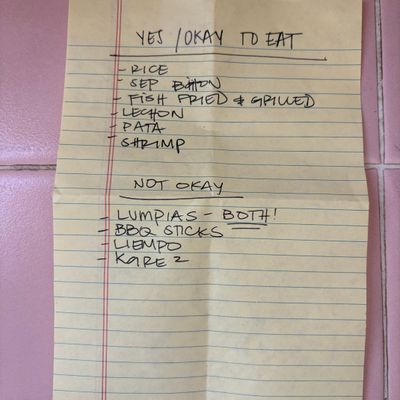 YES / OKAY TO EAT
- RICE
- SEP BIHON
- FISH FRIED & GRILLED
- LECHON
- PATA
- SHRIMP
NOT OKAY
- LUMPIAS - BOTH!
- BBQ STICKS
- LIEMPO
- KARE 2